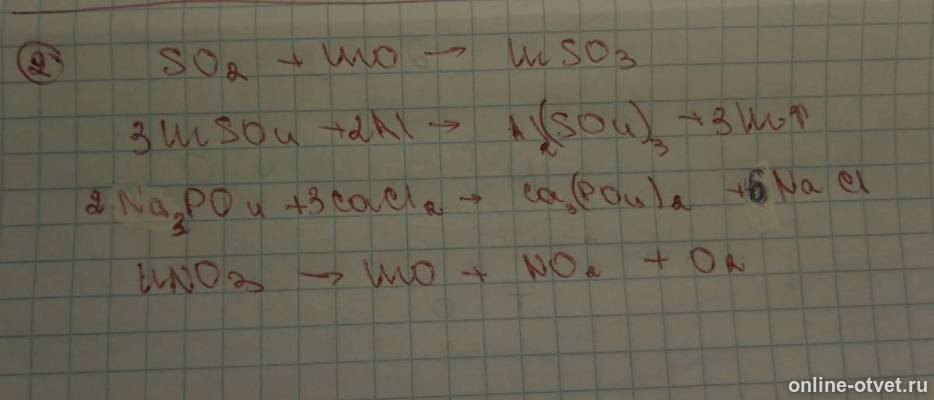 2) SO₂ + H₂O → H₂SO₃
3H₂SO₄ + 2Al → Al₂(SO₄)₃ + 3H₂↑
2Na₃PO₄ + 3CaCl₂ → Ca₃(PO₄)₂ + 6NaCl
HNO₃ → H₂O + NO₂ + O₂
online-otvet.ru